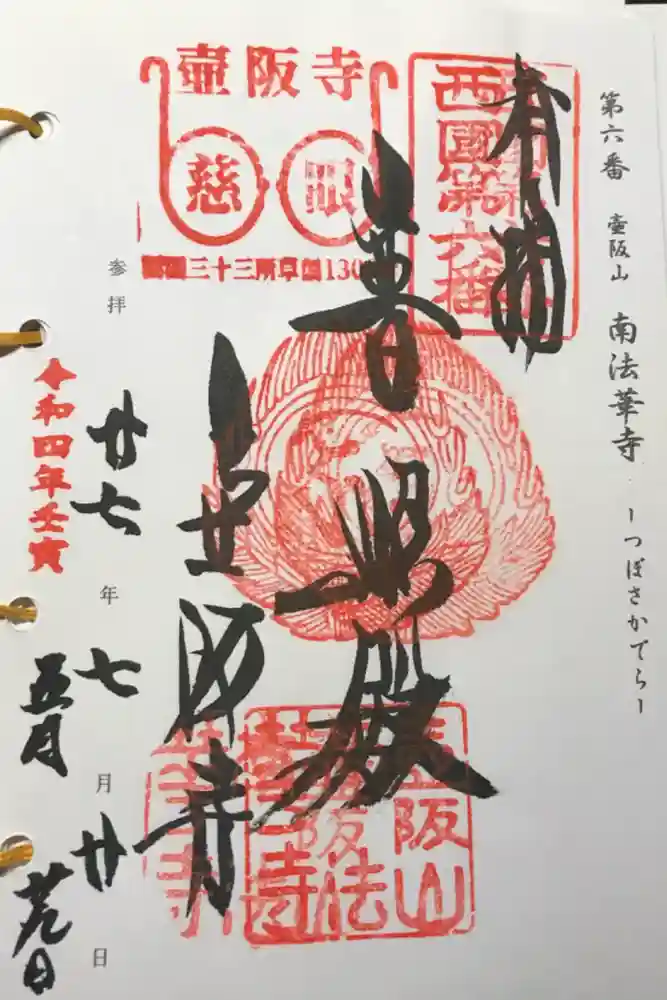 第六番 壷阪山 南法華寺 ーつぼさかでらー
奉拝
西國第六番
壷阪寺
慈 眼
三十三所草創130
普照殿
壷阪寺
壷阪山
法
寺
参拝
廿七年七月廿日
令和四年壬寅
五月
廿九日